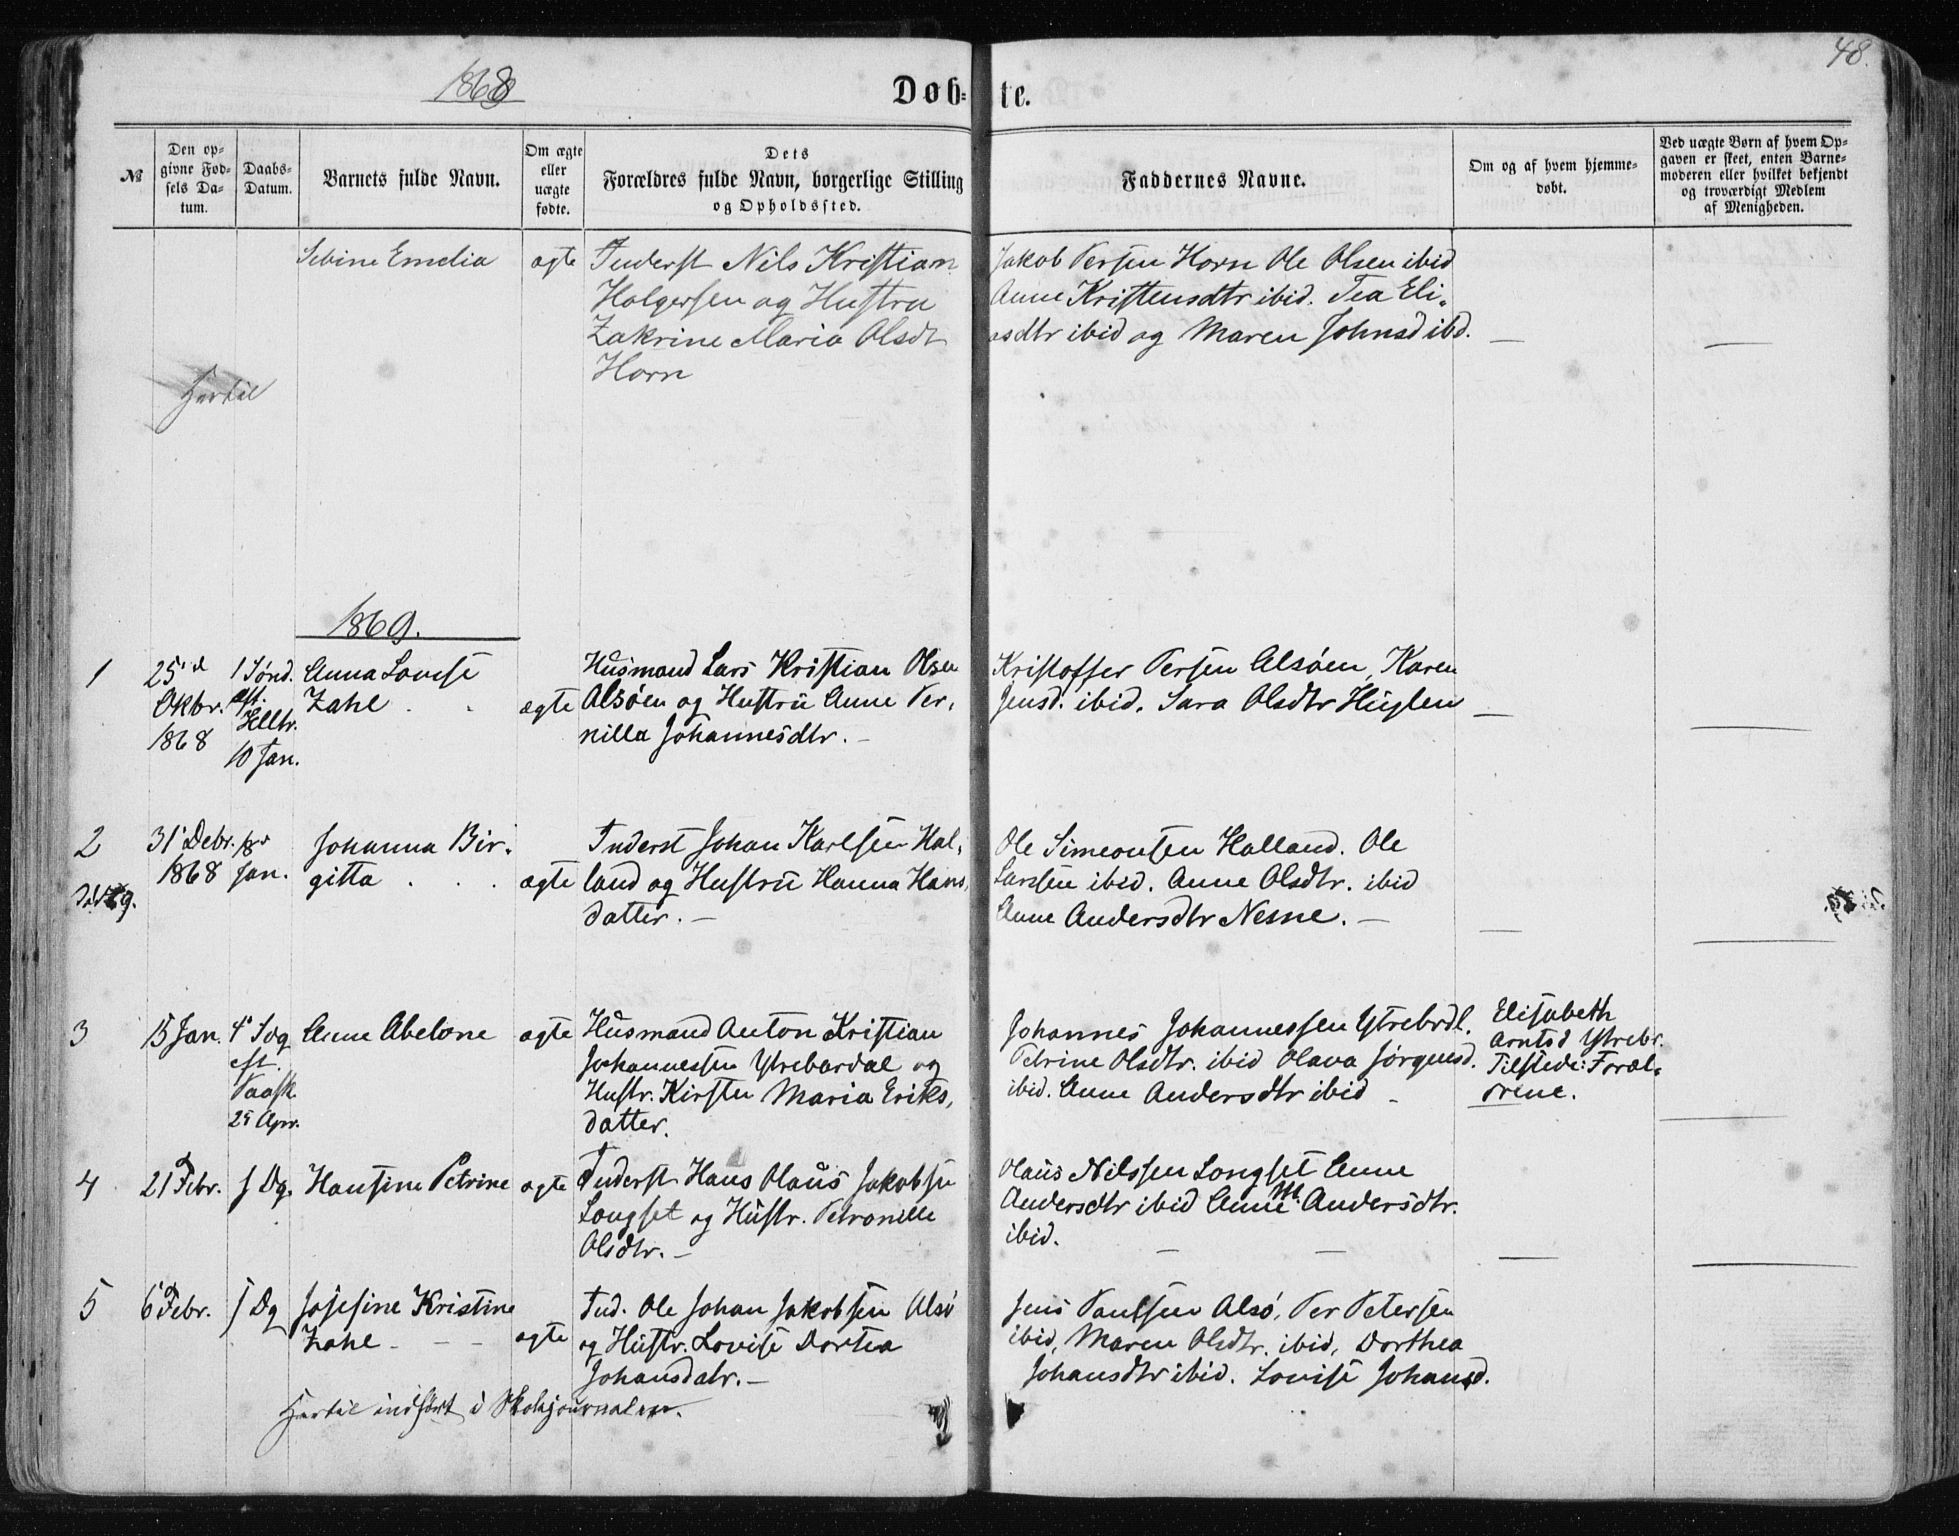 1868
Døb=te.
48.
№
Den op-
givne Fød-
sels Da-
tum.
Daabs-
Datum.
Barnets fulde Navn.
Om ægte
eller
uægte
fødte.
Dets
Forældres fulde Navn, borgerlige Stilling
og Opholdssted.
Faddernes Navne.
Om og af hvem hjemme-
døbt.
Ved uægte Børn af hvem Op-
gaven er skeet, enten Barne-
moderen eller hvilket bekjendt
og troværdigt Medlem
af Menigheden.
Sebine Emelia
ægte
Inderst Nils Kristian
Holgersen og Hustru
Zakrine Maria Olsdt
Horn
Jakob Persen Horn Ole Olsen ibid
Anne Kristensdtr ibid. Tea Eli-
asdtr ibid og Maren Johnsd ibd.
Hertil
1869.
1
25'
Okbr.
1868
1 Sønd.
eft.
Helltr.
10 Jan.
Anna Lovise
Zahl
ægte
Husmand Lars Kristian Olsen
Alsøen og Hustru Anne Per-
nilla Johannesdtr. -
Kristoffer Persen Alsøen, Karen
Jensd. ibid. Sara Olsdtr Huglen
2
31' Debr.
1868
Jan.
Johanna Bir-
gitta
ægte
Inderst Johan Karlsen Hal-
land og Hustru Hanna Hans-
datter. -
Ole Simeonsen Halland. Ole
Larsen ibid. Anne Olsdtr. ibid
Anne Andersdtr Nesne. -
3
15 Jan.
4' Sdg
eft.
Paask
25 Apr.
Anne Abelone
ægte
Husmand Anton Kristian
Johannessen Ytrebardal og
Hustr. Kirsten Maria Eriks-
datter.
Johannes Johannessen Ytrebrdl.
Petrine Olsdtr. ibid Olava Jørgensd.
ibid. Anne Andersdtr ibid -
Elisabeth
Arntsd Ytrebr.
Tilstede: Foræl-
drene.
4
21 Febr.
s Dg.
Hansine Petrine
ægte
Inderst Hans Olaus Jakobsen
Longset og Hustr. Petronille
Olsdtr. -
Olaus Nilssen Longset Anne
Andersdtr ibid Anne M. Andersdtr.
ibid.
5
6 Febr.
s Dg
Josefine Kristine
Zahl
ægte
Ind. Ole Johan Jakobsen Alsø
og Hustr. Lovise Dortea
Johansdatr. -
Jens Paulsen Alsø, Per Petersen
ibid, Maren Olsdtr. ibid, Dorthea
Johansdtr ibid. Lovise Johansd.
Hertil indført i Skolejournalen.